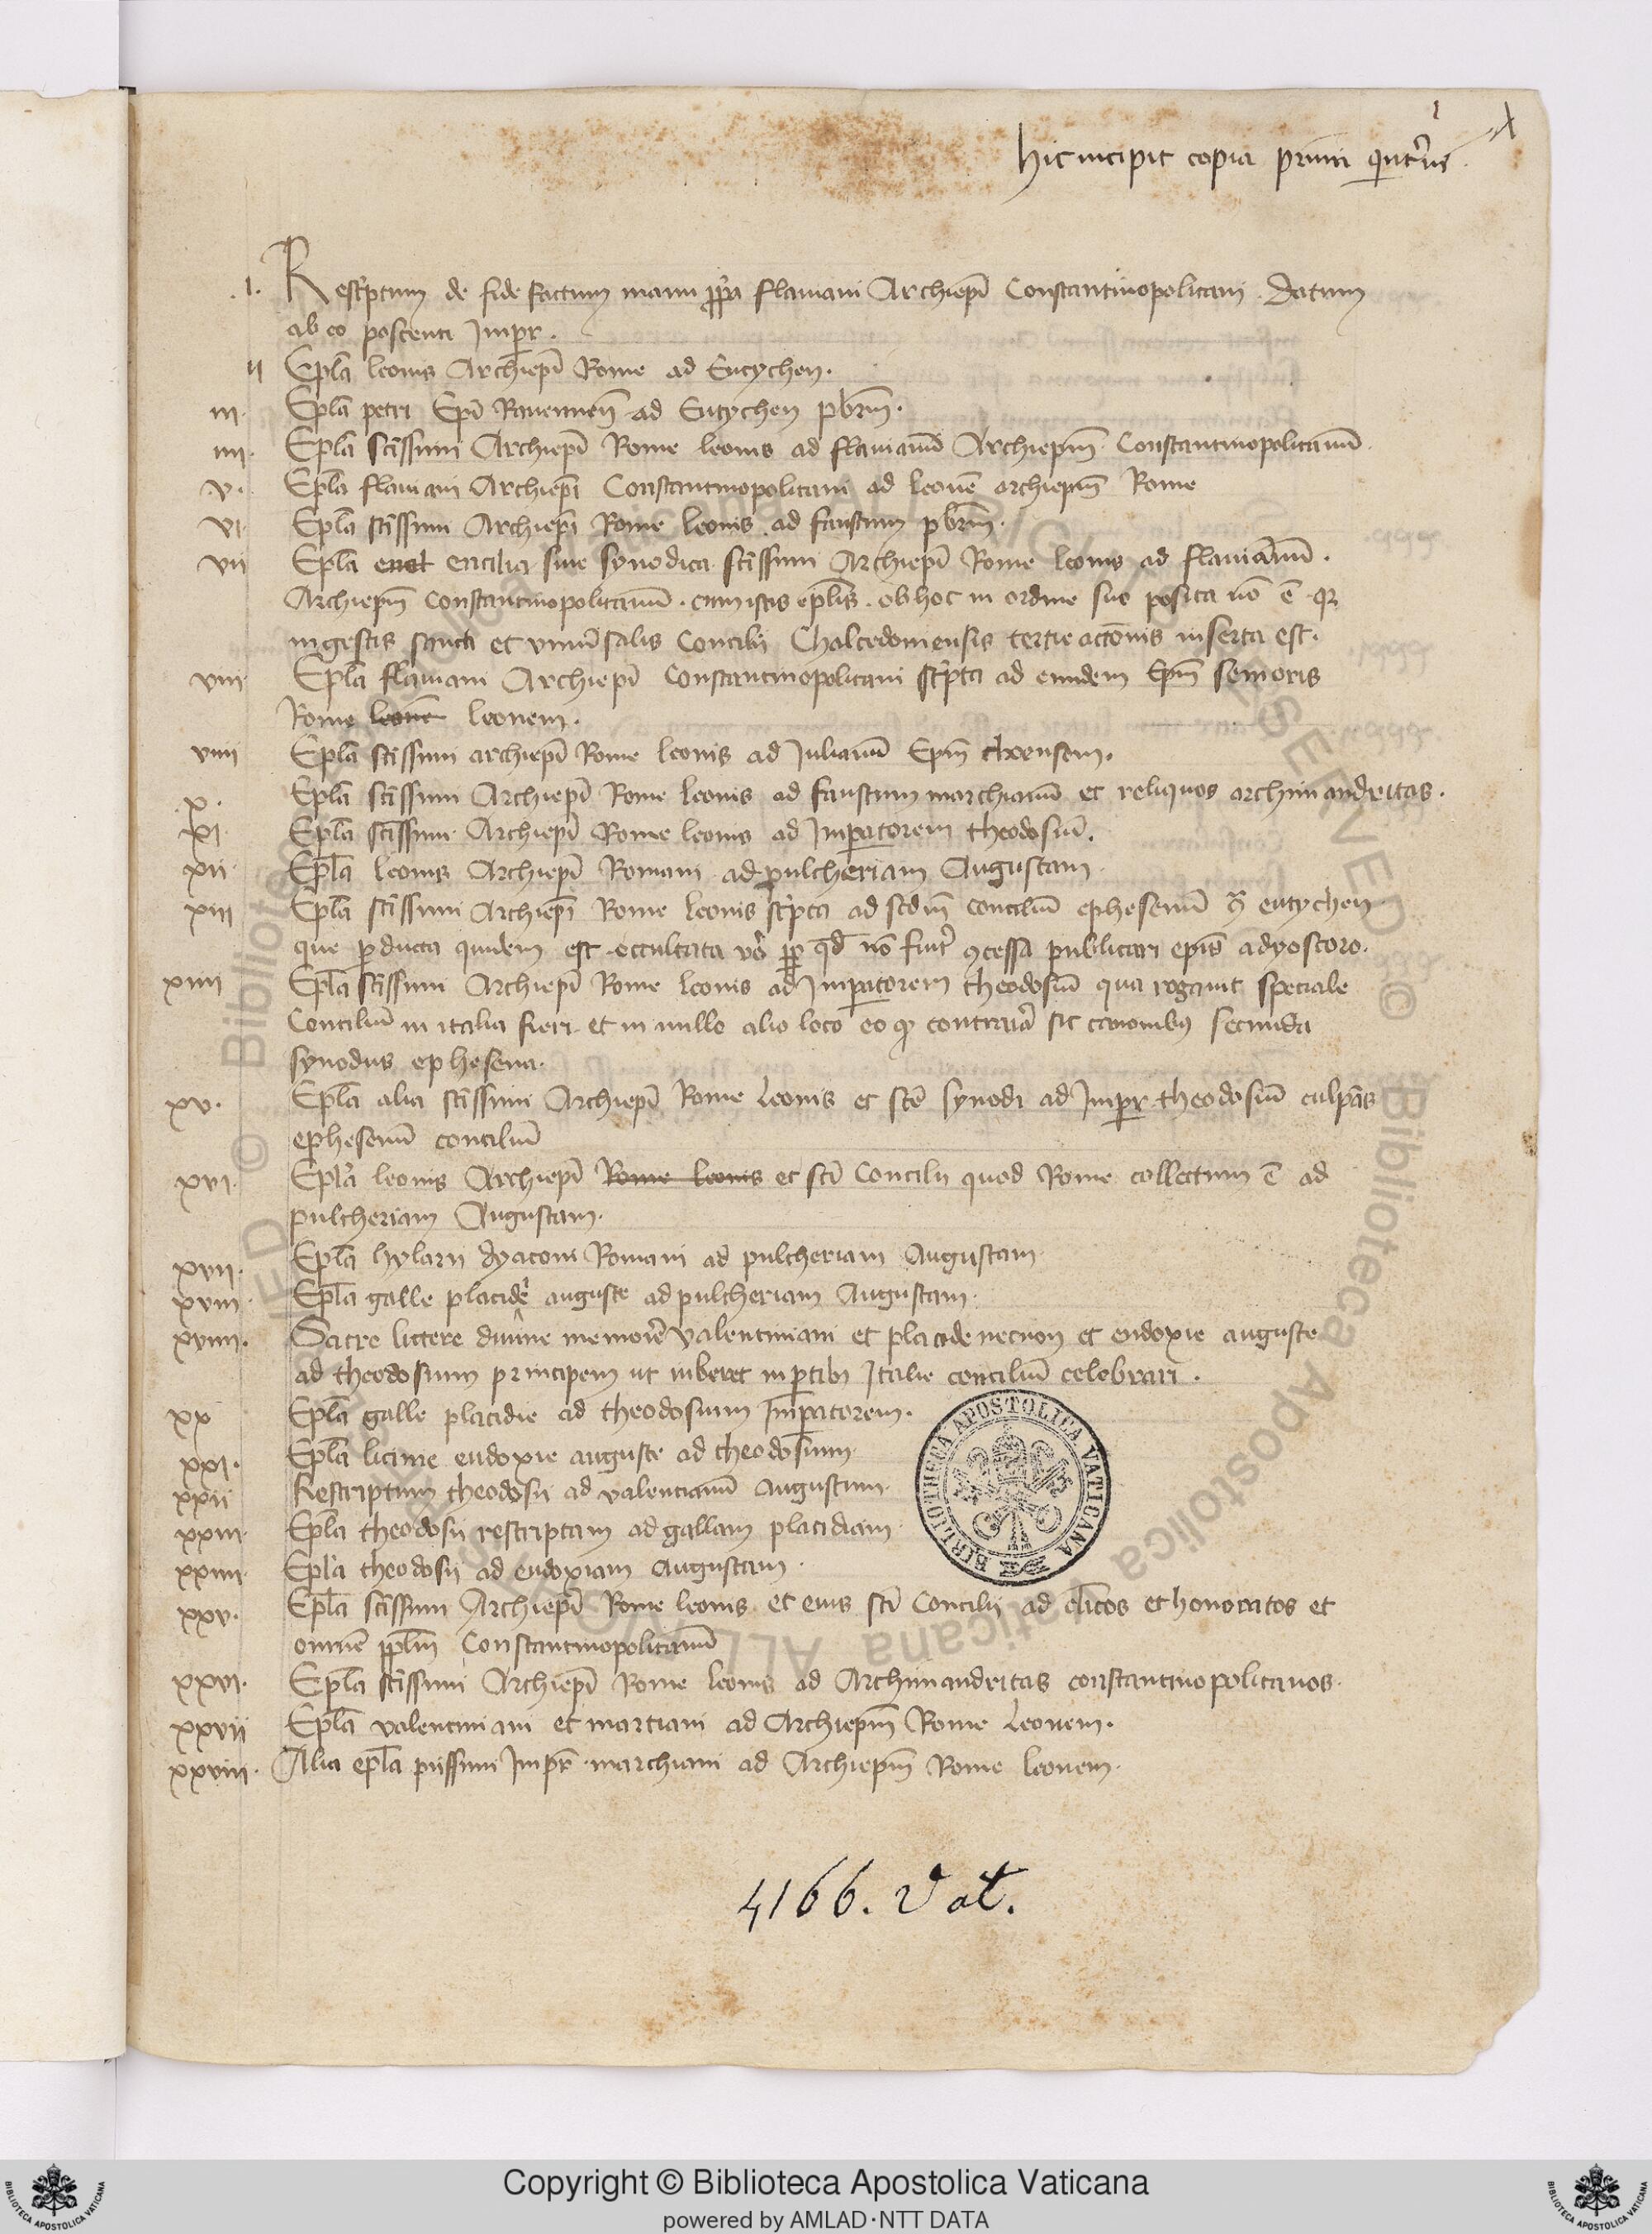 1
hic incipit copia primi quat'ni
.I. Rescptum de fide factum manu ppa flaviani Archiepi Constantinopolitani . Datum
ab eo poscenti Impr .
II Epla leonis Archiepi Rome ad Eutychen .
III . Epla petri Epi Ravennen ad Eutychen pbrm .
IIII . Epla scissimi Archiepi Rome leonis ad flavianu Archiepm Constantinopolitanu .
V . Epla flaviani Archiepi Constantinopolitani ad leone archiepm Rome
VI . Epla scissimi Archiepi Rome leonis ad faustum pbrm .
VII Epla encilia sive synodica scissimi Archiepi Rome leonis ad flavianu .
Archiepm Constantinopolitanu . cum istis eplis . ob hoc in ordine suo posita no e . q
in gestis sancti et univsalis Concilii Chalcedonensis tertie actonis inserta est .
VIII Epla flaviani Archiepi Constantinopolitani scpta ad eundem Epm senioris
Rome leone leonem .
VIIII Epla scissimi archiepi Rome leonis ad Iulianu Epm choensem .
X . Epla scissimi Archiepi Rome leonis ad faustum marchianu et reliquos archimandritas .
XI . Epla scissimi Archiepi Rome leonis ad Impatorem theodosiu .
XII . Epla leonis Archiepi Romani ad pulcheriam Augustam .
XIII Epla scissimi Archiepi Rome leonis scpta ad scdm conciliu ephesenu eutychen
que pducta quidem est occultata vo qd no fuit ccessa publicari epis adyoscoro .
XIIII Epla scissimi Archiepi Rome leonis ad Impatorem theodosiu qua rogavit speciale
Conciliu in italia fieri et in nullo alio loco eo q sit canonibus secunda
synodus ephesena .
XV . Epla alia scissimi Archiepi Rome leonis et sce synodi ad Impr theodosiu culpas
ephesenu conciliu
XVI . Epla leonis Archiepi Rome leonis et sci Concilii quod Rome collectum e ad
pulcheriam Augustam .
XVII . Epla hylarii dyaconi Romani ad pulcheriam Augustam
XVIII . Epla galle placide auguste ad pulcheriam Augustam .
XVIIII . Sacre littere divine memorie valentiniani et placide necnon et eudoxie auguste
ad theodosium principem ut iuberet in ptib Italie conciliu celebrari .
XX Epla galle placidie ad theodosium Impatorem .
XXI . Epla licinie eudoxie auguste ad theodosium .
XXII Rescriptum theodosii ad valentianu Augustum .
XXIII . Epla theodosii rescriptam ad gallam placidiam .
XXIIII . Epla theodosii ad eudoxiam Augustam .
XXV . Epla scissimi Archiepi Rome leonis et eius sci Concilii ad clicos et honoratos et
omne pplm Constantinopolitanu
XXVI . Epla scissimi Archiepi Rome leonis ad Archimandritas constantinopolitanos .
XXVII Epla valentiniani et martiani ad Archiepm Rome leonem .
XXVIII . Alia epla piissimi Impr . marchiani ad Archiepm Rome leonem .
BIBLIOTHECA APOSTOLICA VATICANA
4166. Vat.
Copyright © Biblioteca Apostolica Vaticana
powered by AMLAD・NTT DATA